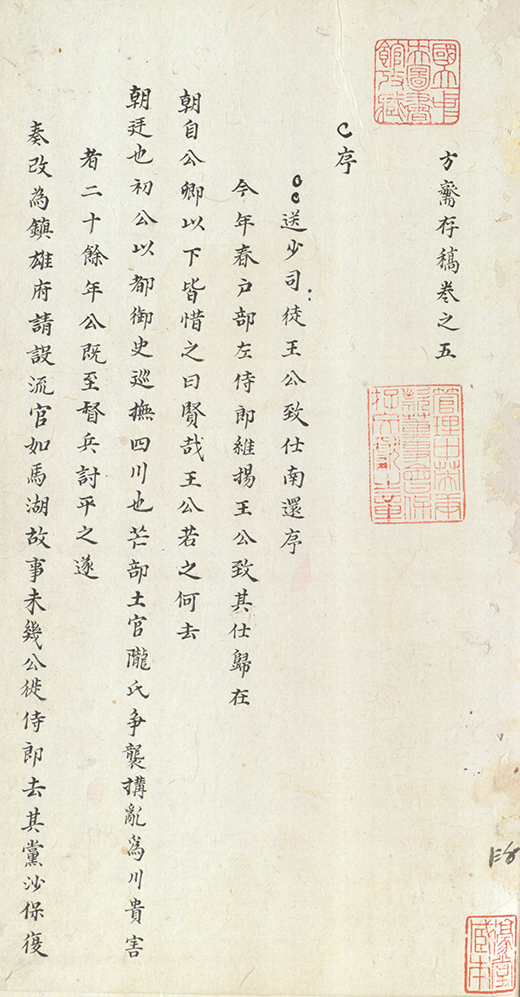 方齋存稿卷之五
序
送少司徒王公致仕南還序
今年春戶部左侍郎維揚王公致其仕歸在
朝自公卿以下皆惜之曰賢哉王公若之何去
朝廷也初公以都御史巡撫四川也芒部土官隴氏争襲搆亂為川貴害
者二十餘年公既至督兵討平之遂
奏改為鎮雄府請設流官如馬湖故事未幾公徙侍郎去其黨沙保復
國立中央圖書館收藏
管理中英庚款董事會保存文獻之章